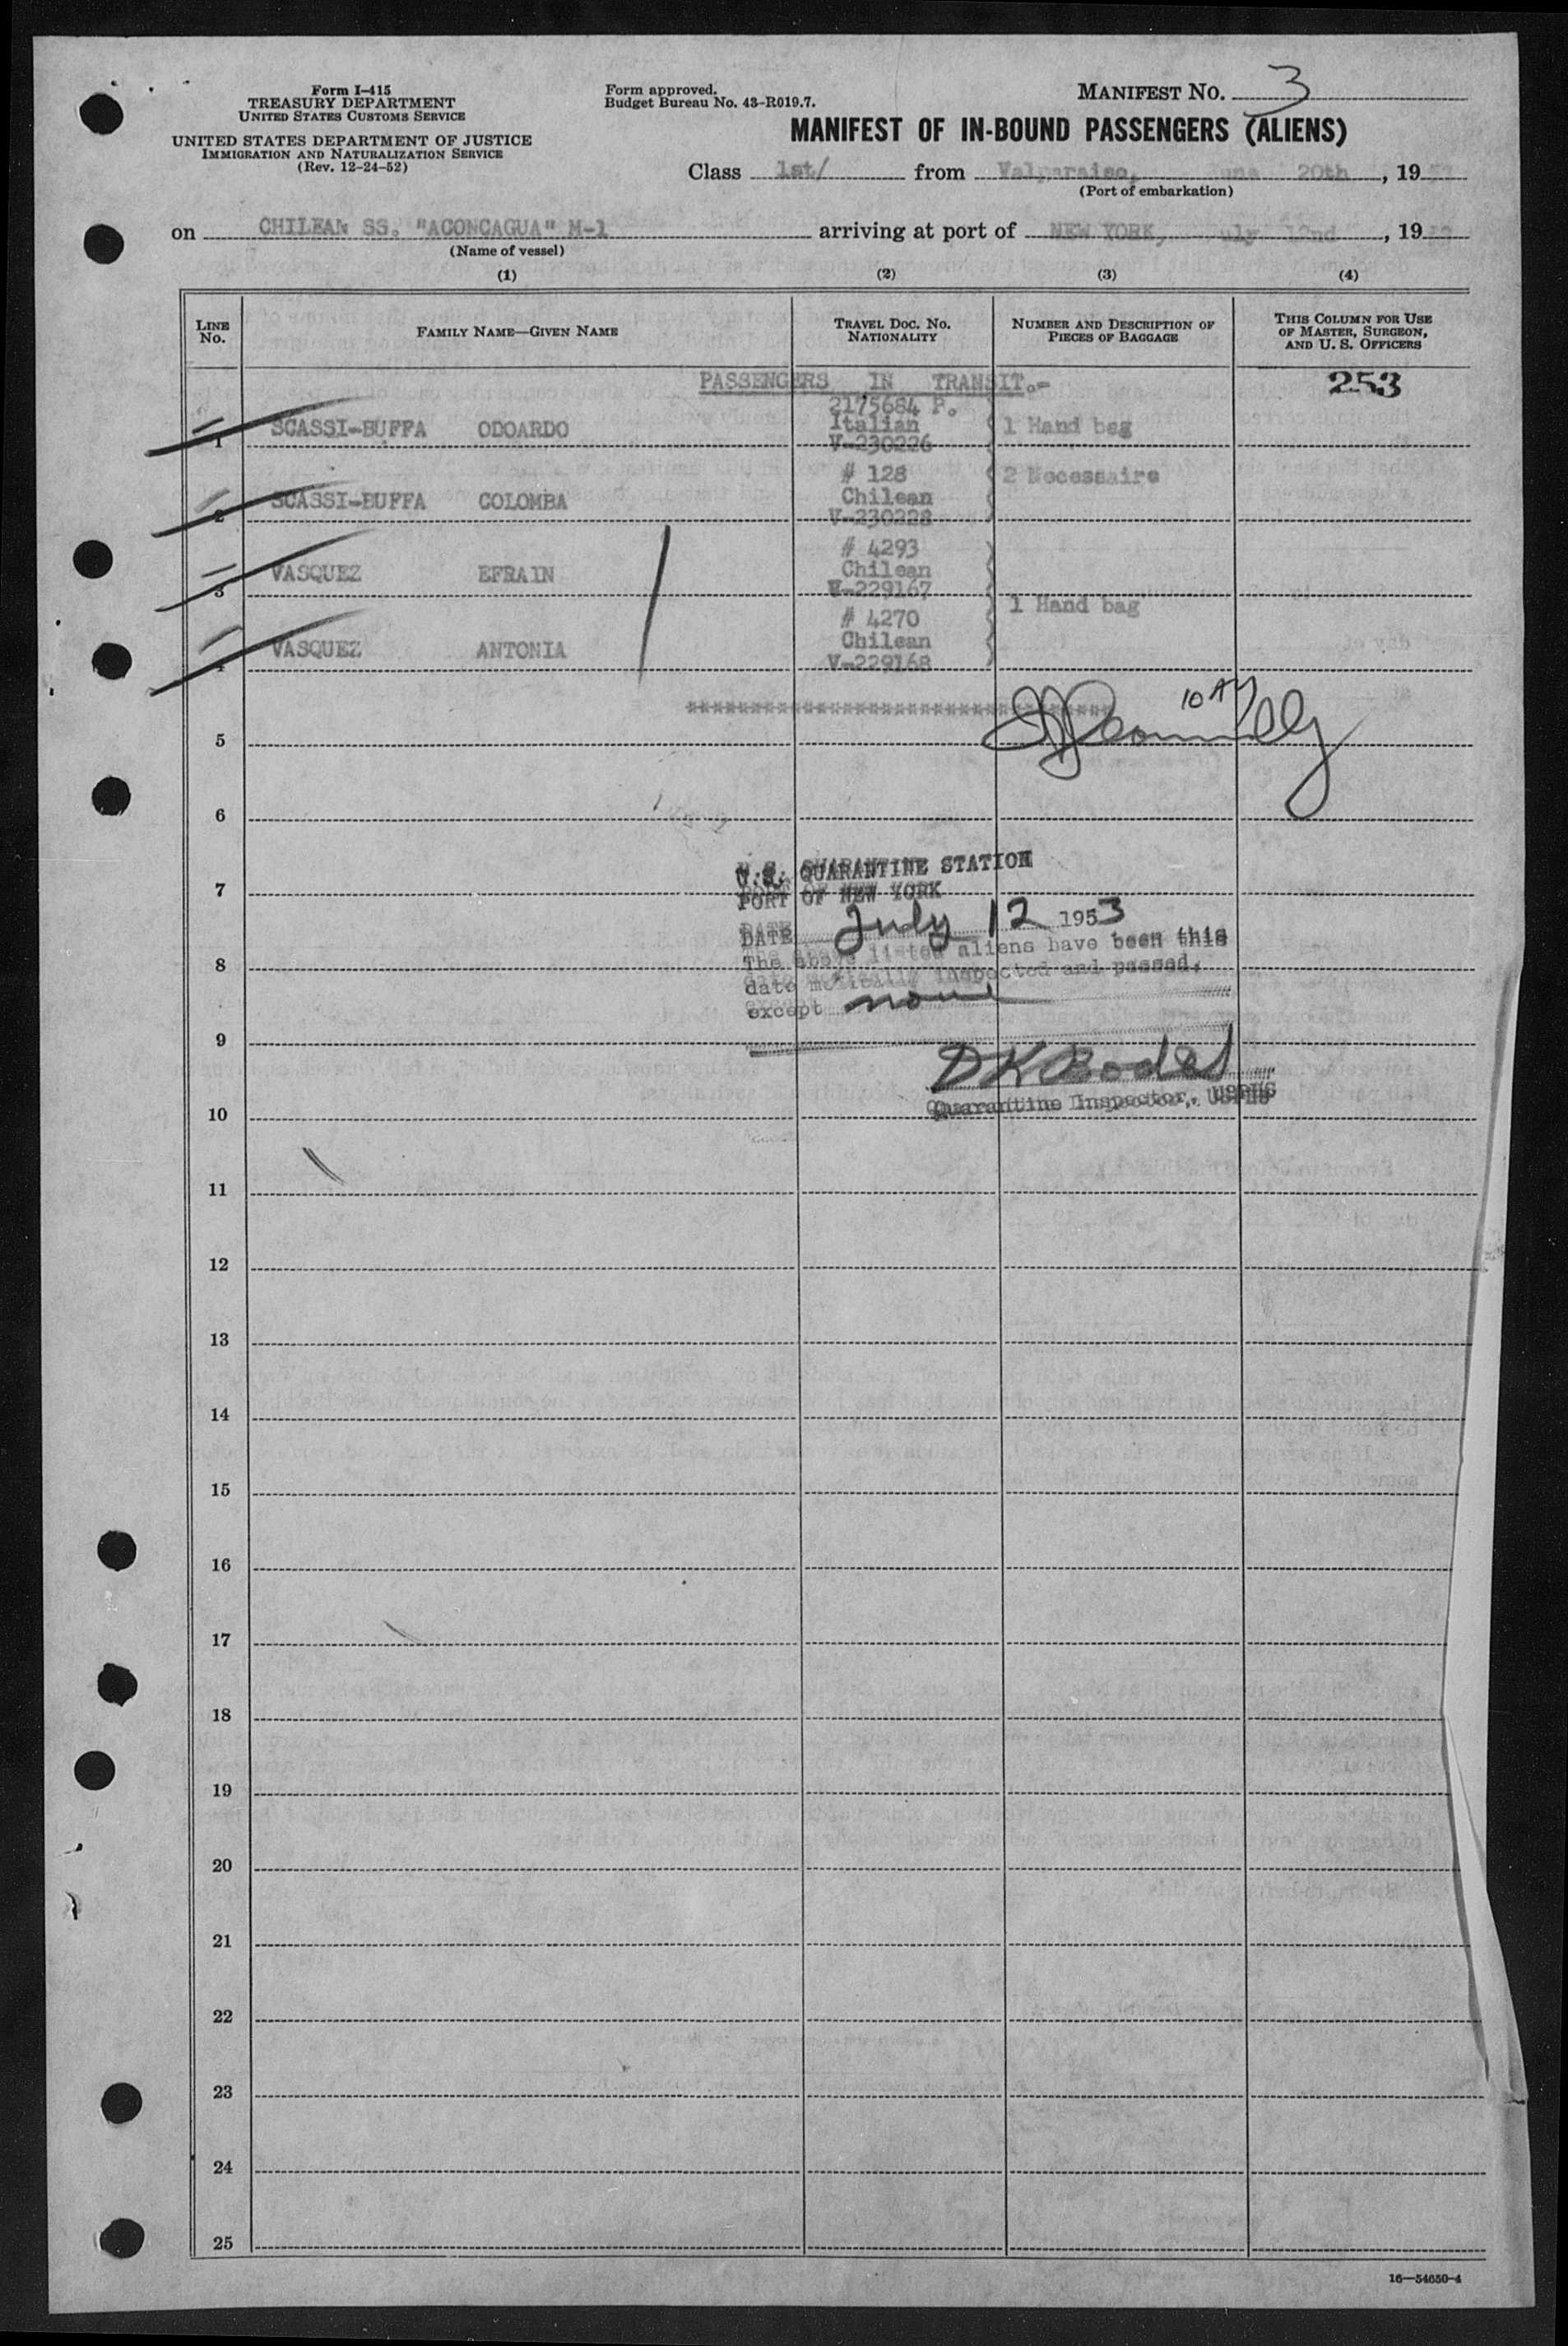 Form I-415
TREASURY DEPARTMENT
UNITED STATES CUSTOMS SERVICE
UNITED STATES DEPARTMENT OF JUSTICE
IMMIGRATION AND NATURALIZATION SERVICE
(Rev. 12-24-52)
Form approved.
Budget Bureau No. 43-R019.7.
MANIFEST NO. 3
MANIFEST OF IN-BOUND PASSENGERS (ALIENS)
Class 1st/ from Valparaiso, une 20th, 19 53
(Port of embarkation)
on CHILEAN SS. "ACONCAGUA" M-1 arriving at port of NEW YORK, uly 12nd, 19
(Name of vessel)
(1) (2) (3) (4)
LINE No. FAMILY NAME—GIVEN NAME TRAVEL DOC. NO. NATIONALITY NUMBER AND DESCRIPTION OF PIECES OF BAGGAGE THIS COLUMN FOR USE OF MASTER, SURGEON, AND U. S. OFFICERS
PASSENGERS IN TRANSIT.- 253
2175684 P.
1 SCASSI-BUFFA ODOARDO Italian 1 Hand bag
V-230226
# 128 2 Necessaire
2 SCASSI-BUFFA COLOMBA Chilean
V-230228
# 4293
3 VASQUEZ EFRAIN Chilean
V-229167
1 Hand bag
# 4270
4 VASQUEZ ANTONIA Chilean
V-229168
10 AM
5
6
U.S. QUARANTINE STATION
7 PORT OF NEW YORK
DATE July 12 1953
The above listed aliens have been this
8
date medically inspected and passed,
except none
9
D K Bodel
Quarantine Inspector, USPHS
10
11
12
13
14
15
16
17
18
19
20
21
22
23
24
25
16—54650-4